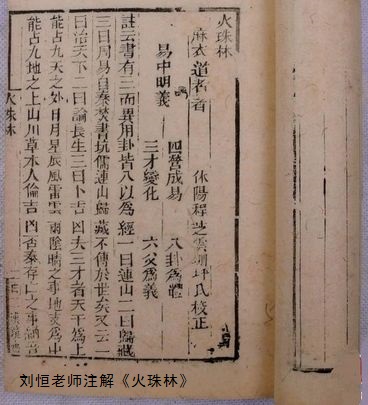 火珠林
麻衣道者著 休陽程芝雲珊坪氏校正
易中明義 四營成易 八卦為體
三才變化 六爻為義
註云書有三而異用卦皆八以為經一曰連山二曰歸藏
三曰周易自秦焚書坑儒連山歸藏不傳於世矣又云一
曰治天下二曰論長生三曰卜吉凶夫三才者天為上
能占九天之外日月星辰風雷雲雨陰晴之事地爻為中
能占九地之上山川草木人倫吉凶否泰存亡之事
火珠林
刘恒老师注解《火珠林》